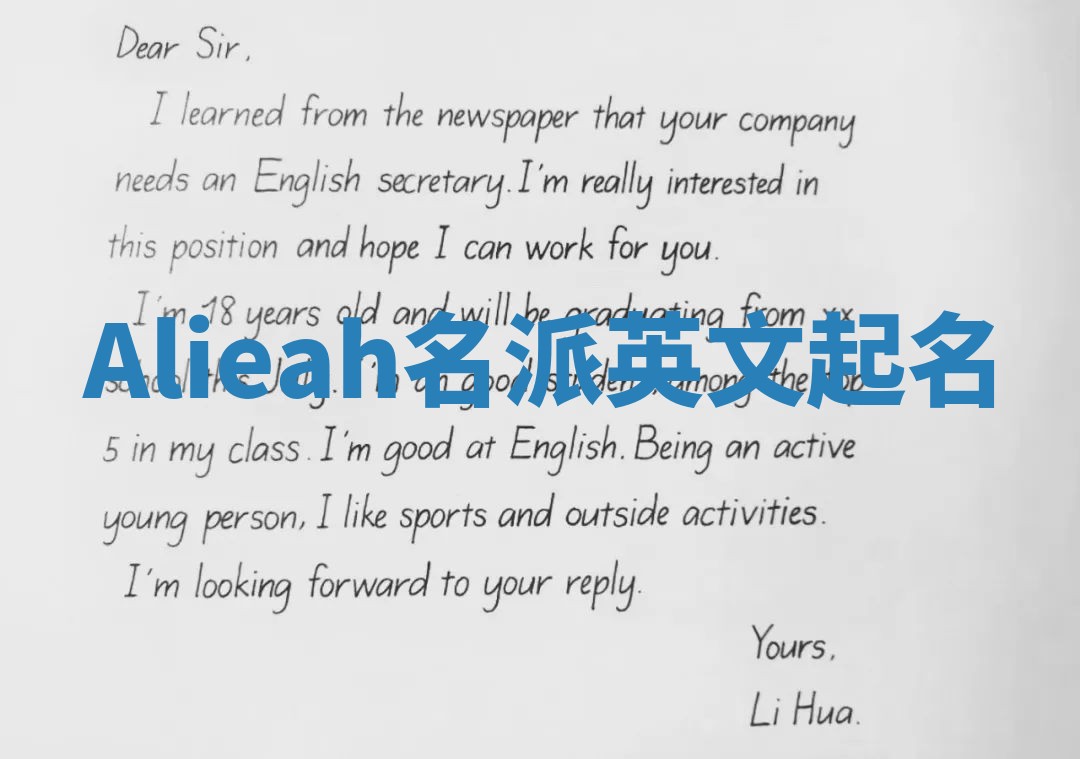 Dear Sir,
I learned from the newspaper that your company
needs an English secretary. I'm really interested in
this position and hope I can work for you.
I'm 18 years old and will be graduating from xx
Alieah名派英文起名
school this July. I'm an good student, among the top
5 in my class. I'm good at English. Being an active
young person, I like sports and outside activities.
I'm looking forward to your reply.
Yours,
Li Hua.